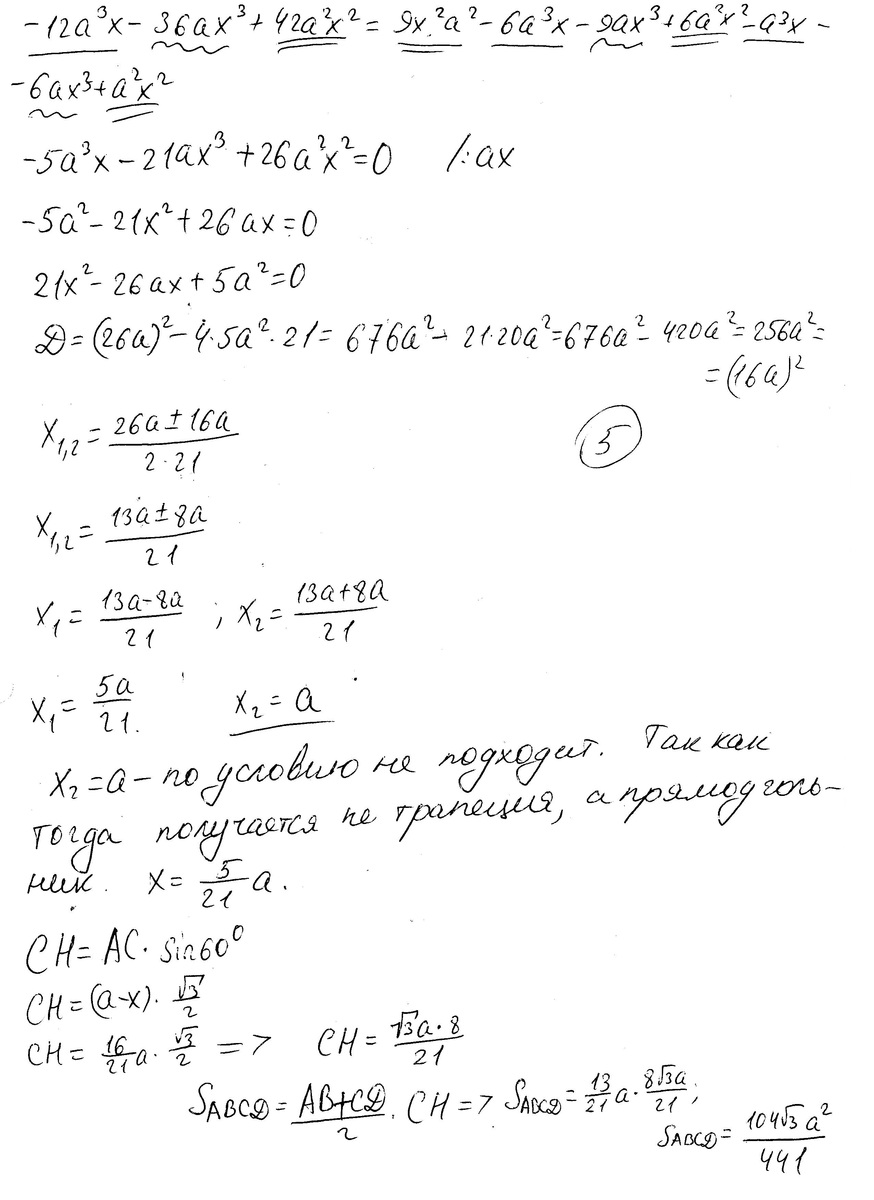 -12a³x - 36ax³ + 42a²x² = 9x²a² - 6a³x - 9ax³ + 6a²x² - a³x -
- 6ax³ + a²x²
-5a³x - 21ax³ + 26a²x² = 0 /:ax
-5a² - 21x² + 26ax = 0
21x² - 26ax + 5a² = 0
D = (26a)² - 4·5a²·21 = 676a² - 21·20a² = 676a² - 420a² = 256a² =
= (16a)²
x₁,₂ = (26a ± 16a)/(2·21)
5
x₁,₂ = (13a ± 8a)/21
x₁ = (13a - 8a)/21 ; x₂ = (13a + 8a)/21
x₁ = 5a/21. x₂ = a
x₂ = a - по условию не подходит. Так как
тогда получается не трапеция, а прямоуголь-
ник. x = 5/21 a.
CH = AC · sin60⁰
CH = (a-x) · √3/2
CH = 16/21 a · √3/2 => CH = √3a·8/21
SABCD = (AB+CD)/2 · CH => SABCD = 13/21 a · 8√3a/21;
SABCD = 104√3 a²/441